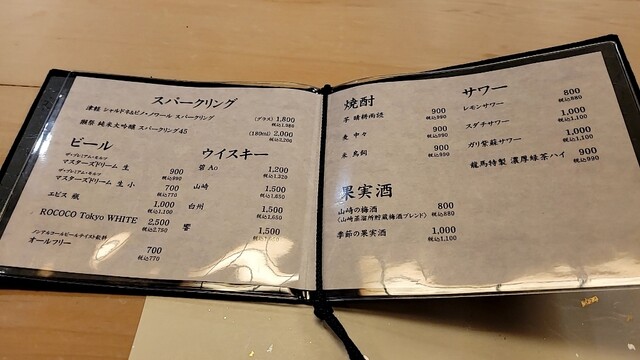 スパークリング
津軽 シャルドネ&ピノ・ノワール スパークリング (グラス) 1,800
税込1,980
獺祭 純米大吟醸 スパークリング45 (180ml) 2,000
税込2,200
ビール
ザ・プレミアム・モルツ
マスターズドリーム 生 900
税込990
ザ・プレミアム・モルツ
マスターズドリーム 生 小 700
税込770
エビス 瓶 1,000
税込1,100
ROCOCO Tokyo WHITE 2,500
税込2,750
ノンアルコールビールテイスト飲料
オールフリー 700
税込770
ウイスキー
碧 Ao 1,200
税込1,320
山崎 1,500
税込1,650
白州 1,500
税込1,650
響 1,500
税込1,650
焼酎
芋 晴耕雨読 900
税込990
麦 中々 900
税込990
米 鳥飼 900
税込990
果実酒
山崎の梅酒 800
(山崎蒸溜所貯蔵梅酒ブレンド) 税込880
季節の果実酒 1,000
税込1,100
サワー
レモンサワー 800
税込880
スダチサワー 1,000
税込1,100
ガリ紫蘇サワー 1,000
税込1,100
龍馬特製 濃厚緑茶ハイ 900
税込990